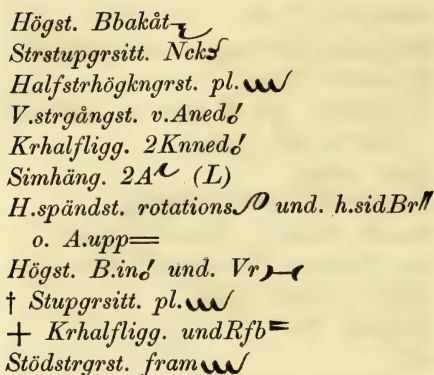 Högst. Bbakåt
Strstupgrsitt. Nck
Halfstrhögkngrst. pl.
V.strgångst. v.Aned
Krhalfligg. 2Knned
Simhäng. 2A (L)
H.spändst. rotations und. h.sidBr
o. A.upp=
Högst. B.in und. Vr
† Stupgrsitt. pl.
+ Krhalfligg. undRfb=
Stödstrgrst. fram